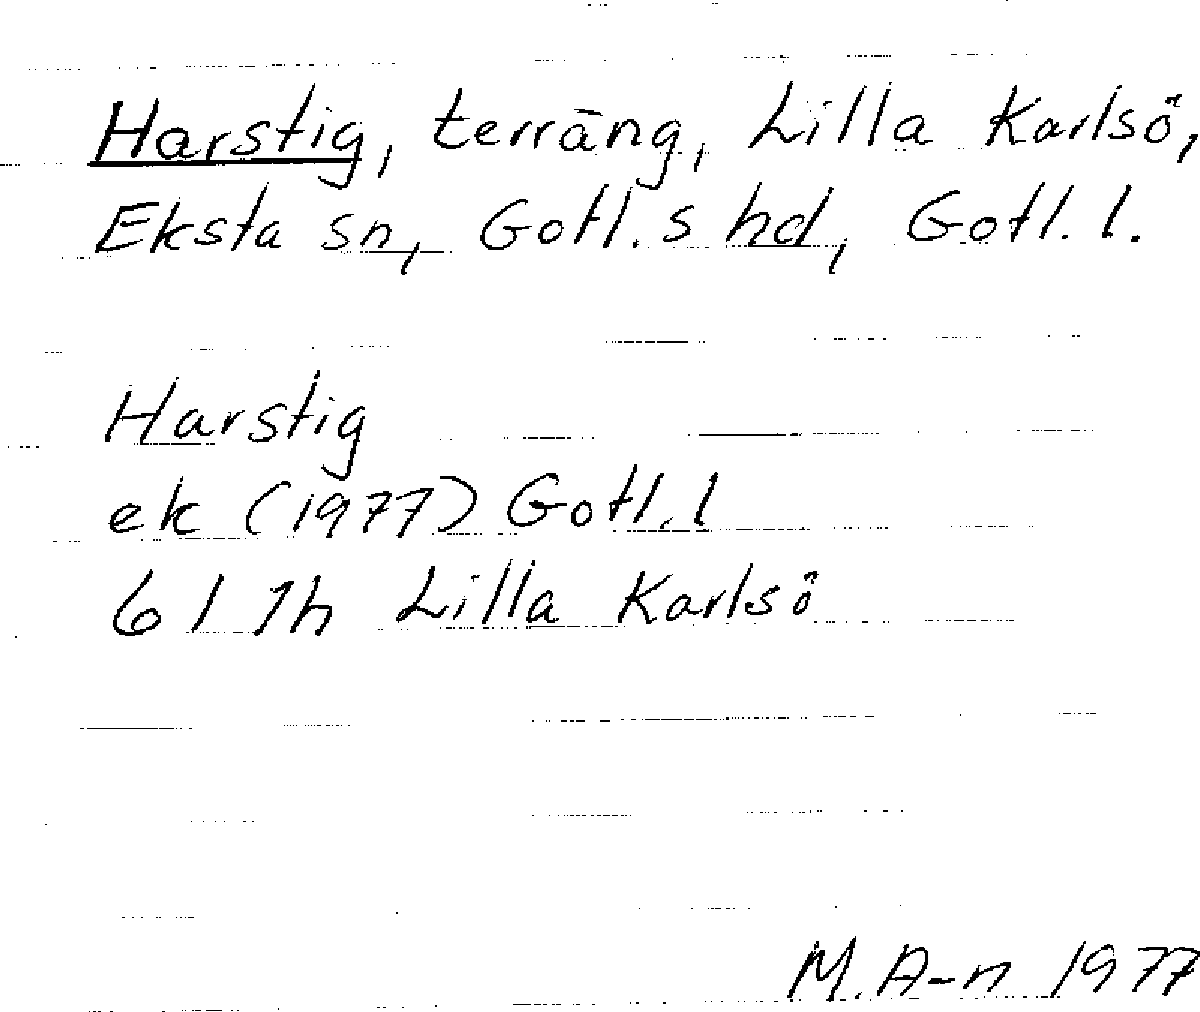 Harstig, terräng, Lilla Karlsö,
Eksta sn, Gotl. s hd, Gotl. l.
Harstig
ek (1977) Gotl. l
6 I 1h Lilla Karlsö
M. A-n 1977